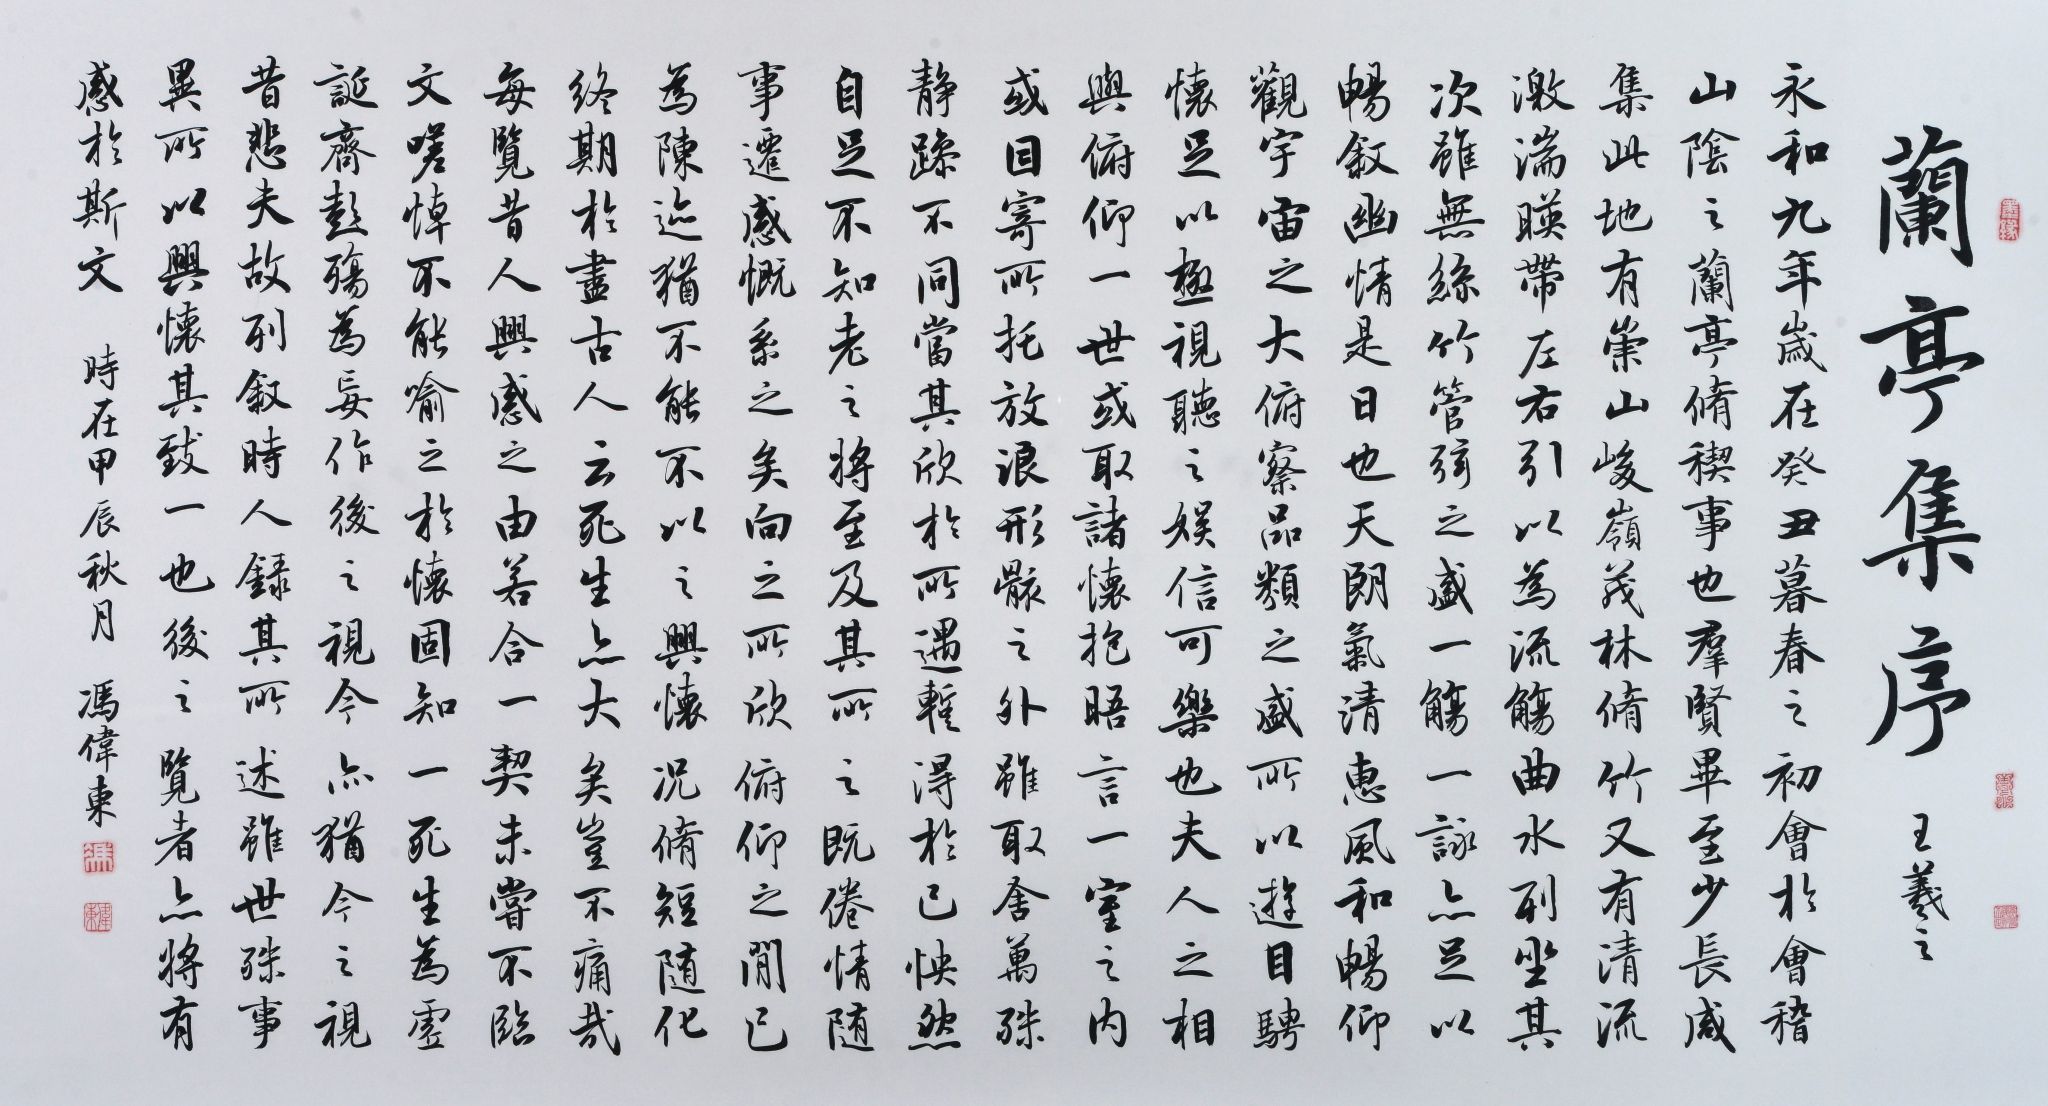 蘭亭集序 王羲之
永和九年歲在癸丑暮春之初會於會稽
山陰之蘭亭脩稧事也羣賢畢至少長咸
集此地有崇山峻嶺茂林脩竹又有清流
激湍暎帶左右引以為流觴曲水列坐其
次雖無絲竹管弦之盛一觴一詠亦足以
暢敘幽情是日也天朗氣清惠風和暢仰
觀宇宙之大俯察品類之盛所以遊目騁
懷足以極視聽之娛信可樂也夫人之相
與俯仰一世或取諸懷抱晤言一室之內
或因寄所托放浪形骸之外雖取舍萬殊
靜躁不同當其欣於所遇暫得於己怏然
自足不知老之將至及其所之既倦情隨
事遷感慨系之矣向之所欣俯仰之間已
為陳迹猶不能不以之興懷況脩短隨化
終期於盡古人云死生亦大矣豈不痛哉
每覽昔人興感之由若合一契未嘗不臨
文嗟悼不能喻之於懷固知一死生為虛
誕齊彭殤為妄作後之視今亦猶今之視
昔悲夫故列敘時人錄其所述雖世殊事
異所以興懷其致一也後之覽者亦將有
感於斯文 時在甲辰秋月 馮偉東